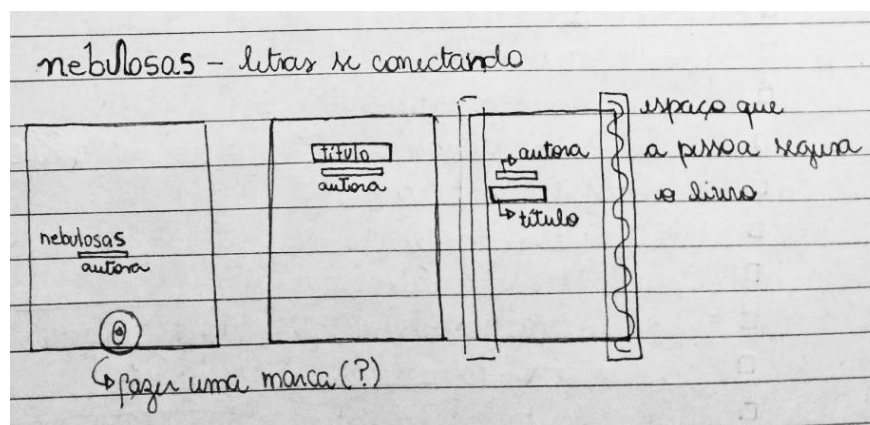 nebulosas - letras se conectando
nebulosas
autora
fazer uma marca (?)
título
autora
autora
título
espaço que
a pessoa segura
o livro